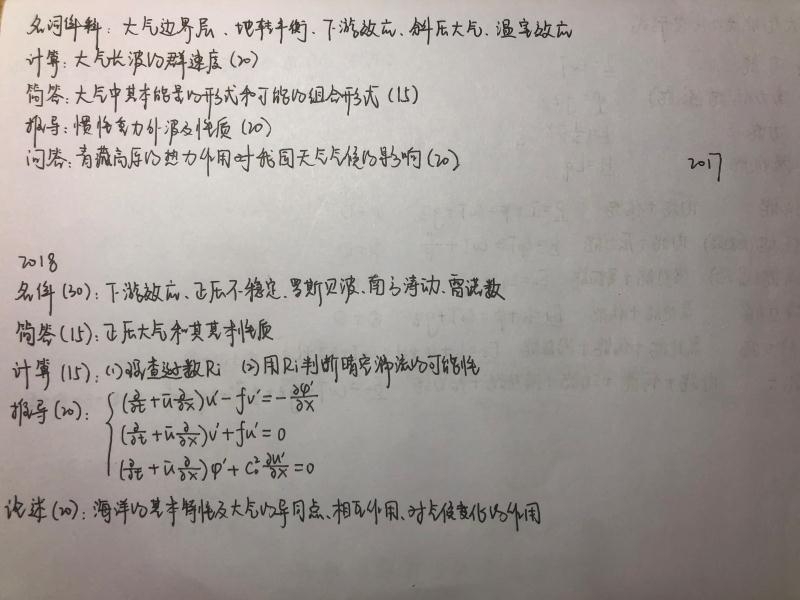 名词解释: 大气边界层、地转平衡、下游效应、斜压大气、温室效应
计算: 大气长波的群速度(20)
简答: 大气中基本能量的形式和可能的组合形式(15)
推导: 惯性重力外波及性质(20)
问答: 青藏高原的热力作用对我国天气气候的影响(20)
2017
2018
名解(30): 下游效应、正压不稳定、罗斯贝波、南方涛动、雷诺数
简答(15): 正压大气和其基本性质
计算(15): (1) 理查逊数Ri (2) 用Ri判断晴空湍流的可能性
推导(20): { (∂/∂t + ū ∂/∂x)u' - fv' = - ∂φ'/∂x
(∂/∂t + ū ∂/∂x)v' + fu' = 0
(∂/∂t + ū ∂/∂x)φ' + C₀² ∂u'/∂x = 0
论述(20): 海洋的基本特性及大气的异同点、相互作用、对气候变化的作用